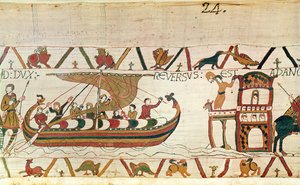 24.
D: DUX: REVERSUS: EST ADAN